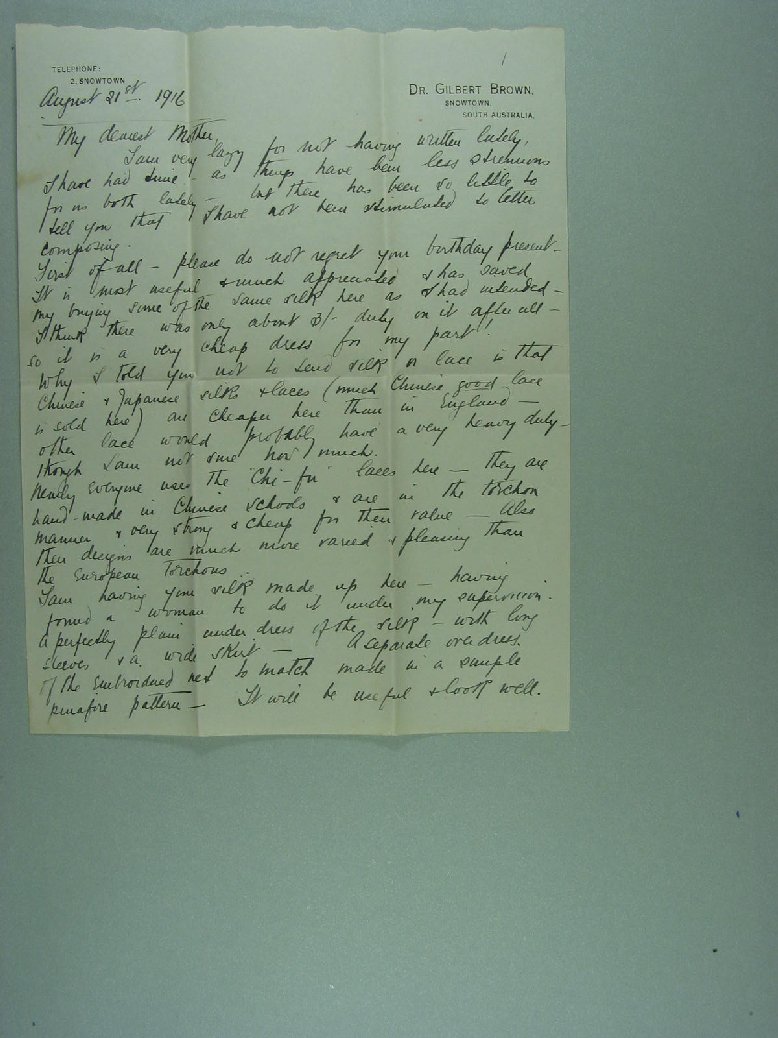 1
TELEPHONE:
2, SNOWTOWN
DR. GILBERT BROWN,
SNOWTOWN,
SOUTH AUSTRALIA.
August 21st 1916
My dearest Mother,
I am very lazy for not having written lately,
I have had time - as things have been less strenuous
for us both lately - but there has been so little to
tell you that I have not been stimulated to letter
composing.
First of all - please do not regret your birthday present -
It is most useful & much appreciated & has saved
my buying some of the same silk here as I had intended -
I think there was only about 3/- duty on it after all -
so it is a very cheap dress for my part!
Why I told you not to send silk or lace is that
Chinese & Japanese silks & laces (much Chinese good lace
is sold here) are cheaper here than in England -
other lace would probably have a very heavy duty -
though I am not sure how much.
Nearly everyone uses the "Chi-fu" laces here - they are
hand-made in Chinese schools & are in the torchon
manner & very strong & cheap for their value - Also
their designs are much more varied & pleasing than
the European Torchons -
I am having your silk made up here - having
found a woman to do it under my supervision.
A perfectly plain under dress of the silk - with long
sleeves & a wide skirt - A separate overdress
of the embroidered net to match made in a simple
pinafore pattern - It will be useful & look well.